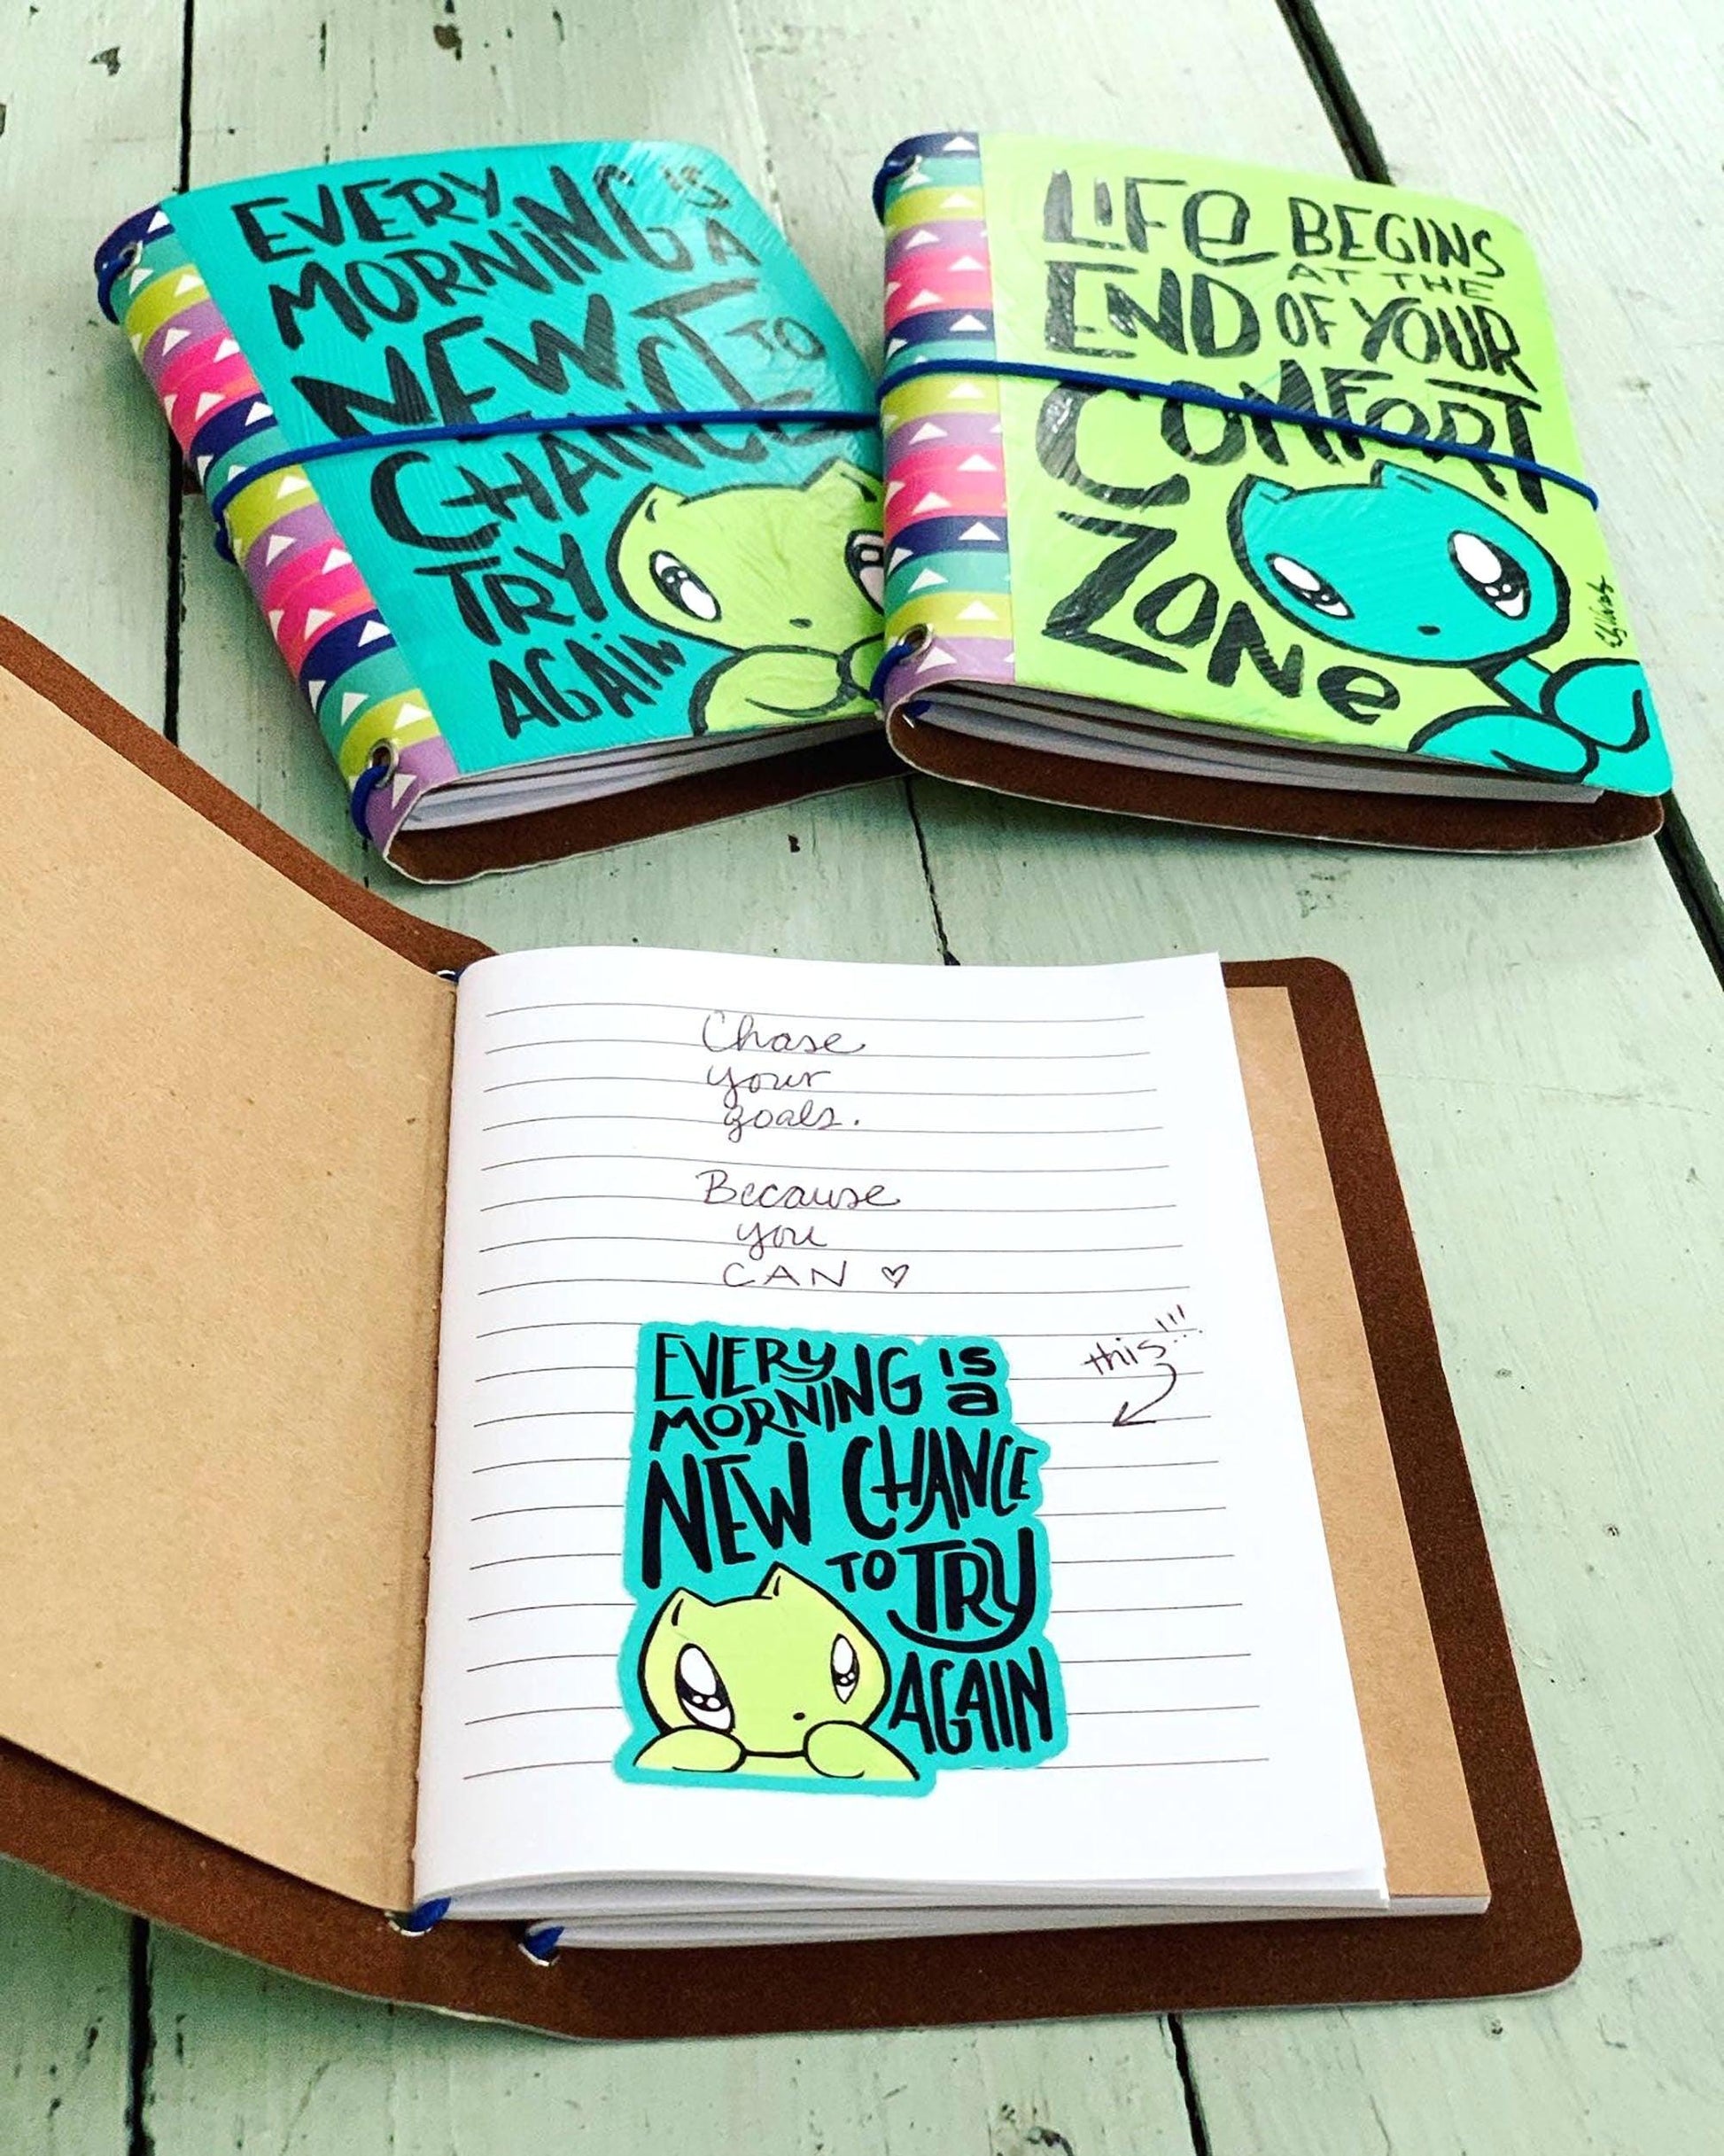 EVERY
MORNiNG iS
A
NEW
CHANCE TO
TRY
AGAiN
LiFe BEGINS
AT THE
END OF YOUR
COMFORT
ZONe
Chase
your
goals.
Because
you
CAN ♡
this!!!
EVERY
MORNING IS
a
NEW CHANCE
TO TRY
AGAIN